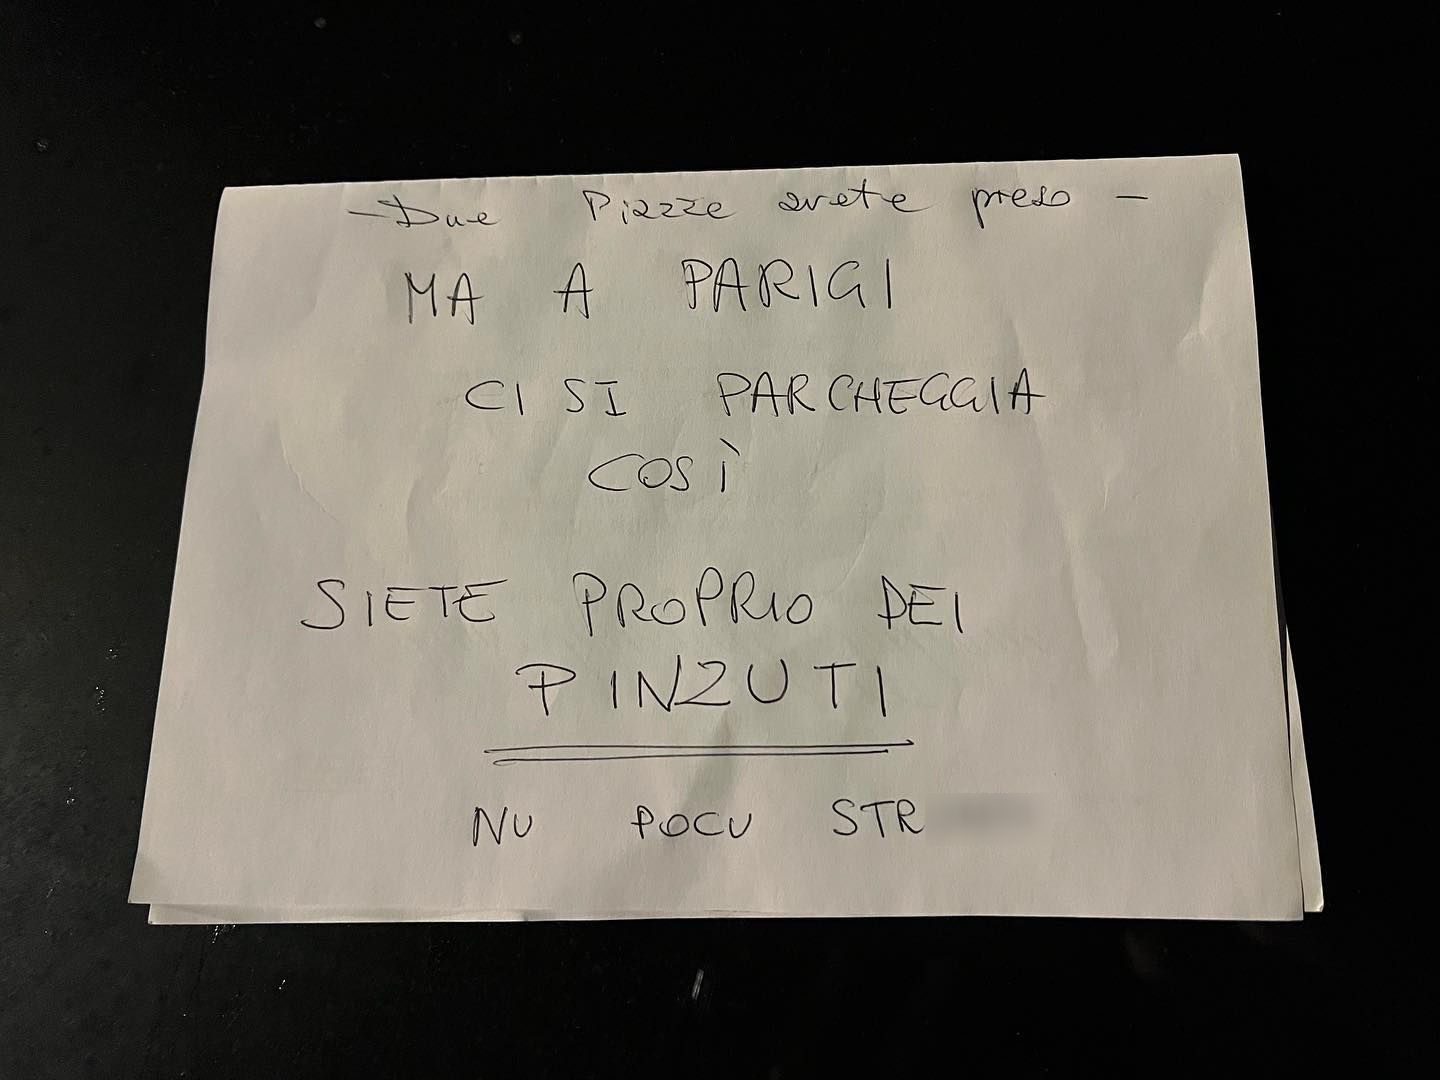 - Due Piazze avete preso -
MA A PARIGI
CI SI PARCHEGGIA
COSÌ
SIETE PROPRIO DEI
PINZUTI
NU POCU STR